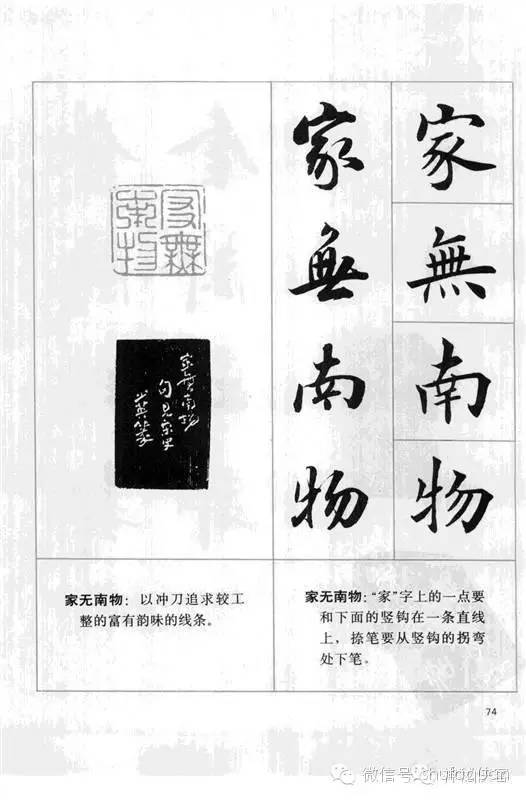 家無南物
家無南物
家无南物
家無南物
句見宋史
家无南物：以冲刀追求较工
整的富有韵味的线条。
家无南物：“家”字上的一点要
和下面的竖钩在一条直线
上，捺笔要从竖钩的拐弯
处下笔。
74
微信号